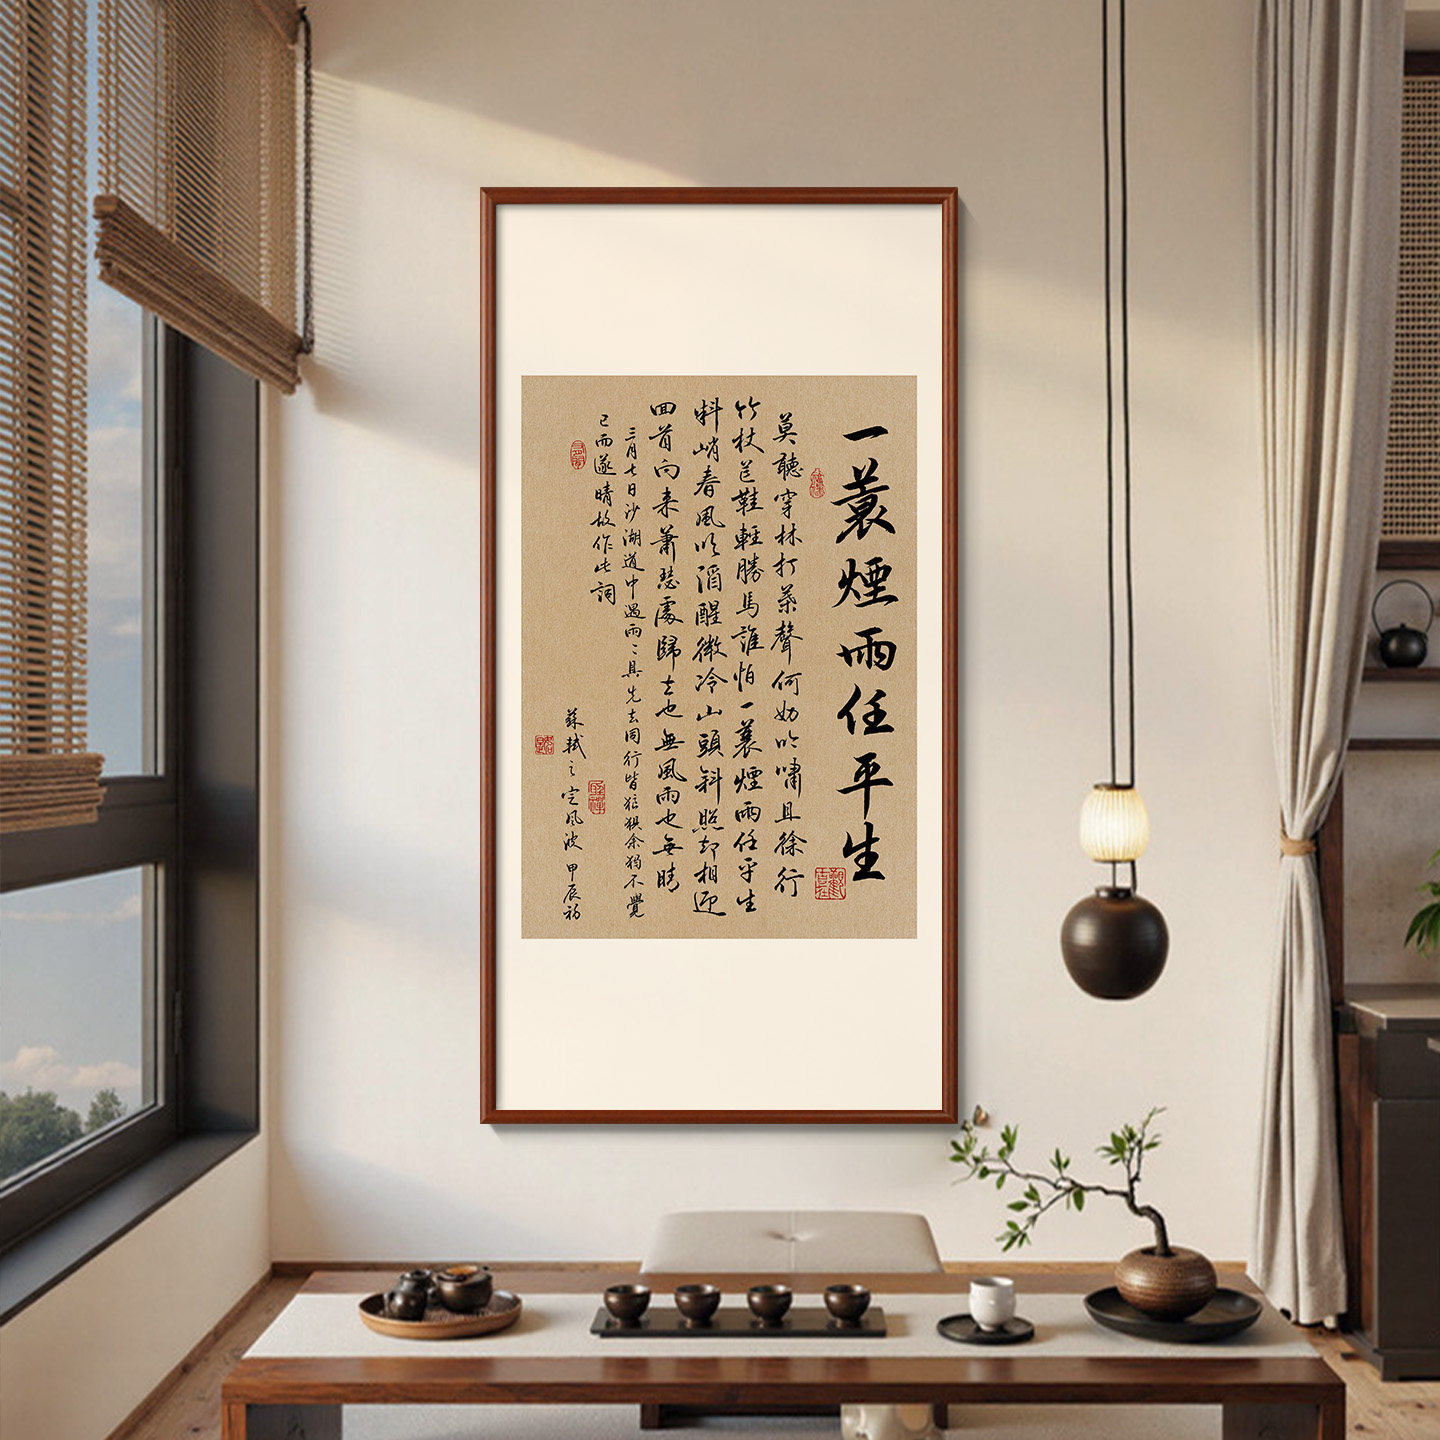 一蓑煙雨任平生
莫聽穿林打葉聲何妨吟嘯且徐行
竹杖芒鞋輕勝馬誰怕一蓑煙雨任平生
料峭春風吹酒醒微冷山頭斜照却相迎
回首向来蕭瑟處歸去也無風雨也無晴
三月七日沙湖道中遇雨〻具先去同行皆狼狽余獨不覺
已而遂晴故作此詞
蘇軾之定風波 甲辰